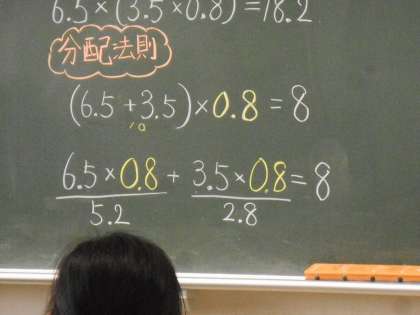 6.5×(3.5×0.8)=18.2
分配法則
(6.5+3.5)×0.8=8
10
6.5×0.8+3.5×0.8=8
5.2 2.8